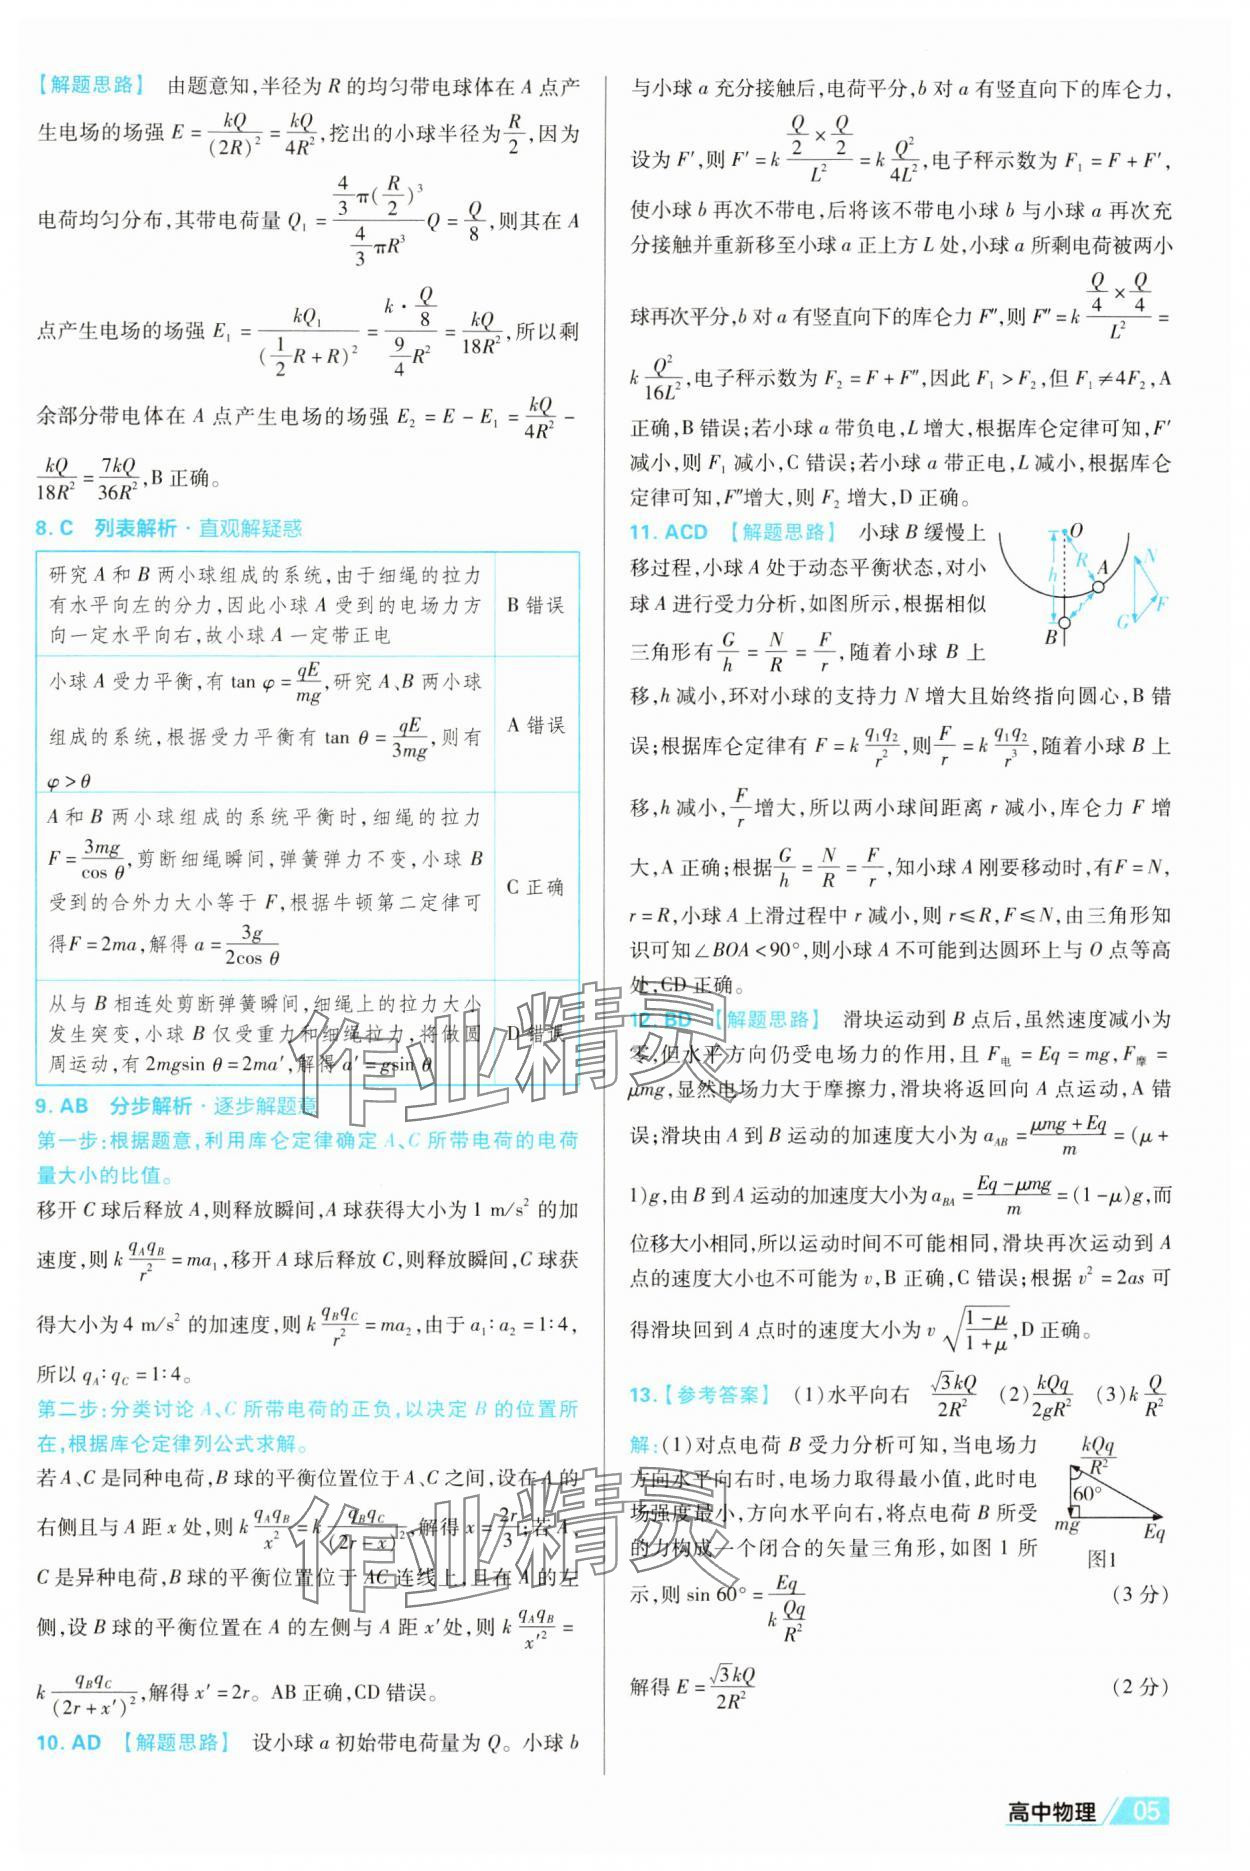 【解题思路】 由题意知,半径为 R 的均匀带电球体在 A 点产
生电场的场强 E = kQ/(2R)² = kQ/4R²,挖出的小球半径为 R/2,因为
电荷均匀分布,其带电荷量 Q₁ = (4/3 π(R/2)³)/(4/3 πR³) Q = Q/8,则其在 A
点产生电场的场强 E₁ = kQ₁/(1/2 R + R)² = (k · Q/8)/(9/4 R²) = kQ/18R²,所以剩
余部分带电体在 A 点产生电场的场强 E₂ = E − E₁ = kQ/4R² −
kQ/18R² = 7kQ/36R²,B 正确。
8. C 列表解析 · 直观解疑惑
研究 A 和 B 两小球组成的系统,由于细绳的拉力
有水平向左的分力,因此小球 A 受到的电场力方
向一定水平向右,故小球 A 一定带正电
B 错误
小球 A 受力平衡,有 tan φ = qE/mg,研究 A、B 两小球
组成的系统,根据受力平衡有 tan θ = qE/3mg,则有
φ > θ
A 错误
A 和 B 两小球组成的系统平衡时,细绳的拉力
F = 3mg/cos θ,剪断细绳瞬间,弹簧弹力不变,小球 B
受到的合外力大小等于 F,根据牛顿第二定律可
得F = 2ma,解得 a = 3g/2cos θ
C 正确
从与 B 相连处剪断弹簧瞬间,细绳上的拉力大小
发生突变,小球 B 仅受重力和细绳拉力,将做圆
周运动,有 2mgsin θ = 2ma′,解得 a′ = gsin θ
D 错误
9. AB 分步解析 · 逐步解题意
第一步:根据题意,利用库仑定律确定 A、C 所带电荷的电荷
量大小的比值。
移开 C 球后释放 A,则释放瞬间,A 球获得大小为 1 m/s² 的加
速度,则 k qAqB/r² = ma₁,移开 A 球后释放 C,则释放瞬间,C 球获
得大小为 4 m/s² 的加速度,则 k qBqC/r² = ma₂,由于 a₁∶a₂ = 1∶4,
所以 qA∶qC = 1∶4。
第二步:分类讨论 A、C 所带电荷的正负,以决定 B 的位置所
在,根据库仑定律列公式求解。
若 A、C 是同种电荷,B 球的平衡位置位于 A、C 之间,设在 A 的
右侧且与 A 距 x 处,则 k qAqB/x² = k qBqC/(2r − x)²,解得 x = 2r/3;若 A、
C 是异种电荷,B 球的平衡位置位于 AC 连线上,且在 A 的左
侧,设 B 球的平衡位置在 A 的左侧与 A 距 x′处,则 k qAqB/x′² =
k qBqC/(2r + x′)²,解得 x′ = 2r。AB 正确,CD 错误。
10. AD 【解题思路】 设小球 a 初始带电荷量为 Q。小球 b
与小球 a 充分接触后,电荷平分,b 对 a 有竖直向下的库仑力,
设为 F′,则 F′ = k (Q/2 × Q/2)/L² = k Q²/4L²,电子秤示数为 F₁ = F + F′,
使小球 b 再次不带电,后将该不带电小球 b 与小球 a 再次充
分接触并重新移至小球 a 正上方 L 处,小球 a 所剩电荷被两小
球再次平分,b 对 a 有竖直向下的库仑力 F″,则 F″ = k (Q/4 × Q/4)/L² =
k Q²/16L²,电子秤示数为 F₂ = F + F″,因此 F₁ > F₂,但 F₁ ≠ 4F₂,A
正确,B 错误;若小球 a 带负电,L 增大,根据库仑定律可知,F′
减小,则 F₁ 减小,C 错误;若小球 a 带正电,L 减小,根据库仑
定律可知,F″增大,则 F₂ 增大,D 正确。
11. ACD 【解题思路】 小球 B 缓慢上
移过程,小球 A 处于动态平衡状态,对小
球 A 进行受力分析,如图所示,根据相似
三角形有 G/h = N/R = F/r,随着小球 B 上
O
R
h
A
r
B
N
F
G
移,h 减小,环对小球的支持力 N 增大且始终指向圆心,B 错
误;根据库仑定律有 F = k q₁q₂/r²,则 F/r = k q₁q₂/r³,随着小球 B 上
移,h 减小,F/r 增大,所以两小球间距离 r 减小,库仑力 F 增
大,A 正确;根据 G/h = N/R = F/r,知小球 A 刚要移动时,有F = N,
r = R,小球 A 上滑过程中 r 减小,则 r ≤ R,F ≤ N,由三角形知
识可知∠BOA < 90°,则小球 A 不可能到达圆环上与 O 点等高
处,CD 正确。
12. BD 【解题思路】 滑块运动到 B 点后,虽然速度减小为
零,但水平方向仍受电场力的作用,且 F电 = Eq = mg,F摩 =
μmg,显然电场力大于摩擦力,滑块将返回向 A 点运动,A 错
误;滑块由 A 到 B 运动的加速度大小为 aAB = (μmg + Eq)/m = (μ +
1)g,由 B 到 A 运动的加速度大小为 aBA = (Eq − μmg)/m = (1 − μ)g,而
位移大小相同,所以运动时间不可能相同,滑块再次运动到 A
点的速度大小也不可能为 v,B 正确,C 错误;根据 v² = 2as 可
得滑块回到 A 点时的速度大小为 v √((1 − μ)/(1 + μ)),D 正确。
13.【参考答案】 (1)水平向右 √3kQ/2R² (2) kQq/2gR² (3) k Q/R²
解:(1)对点电荷 B 受力分析可知,当电场力
方向水平向右时,电场力取得最小值,此时电
场强度最小,方向水平向右,将点电荷 B 所受
的力构成一个闭合的矢量三角形,如图 1 所
示,则 sin 60° = Eq/(k Qq/R²) (3 分)
kQq/R²
60°
mg
Eq
图1
解得 E = √3kQ/2R² (2 分)
高中物理 05
作业精灵
作业精灵